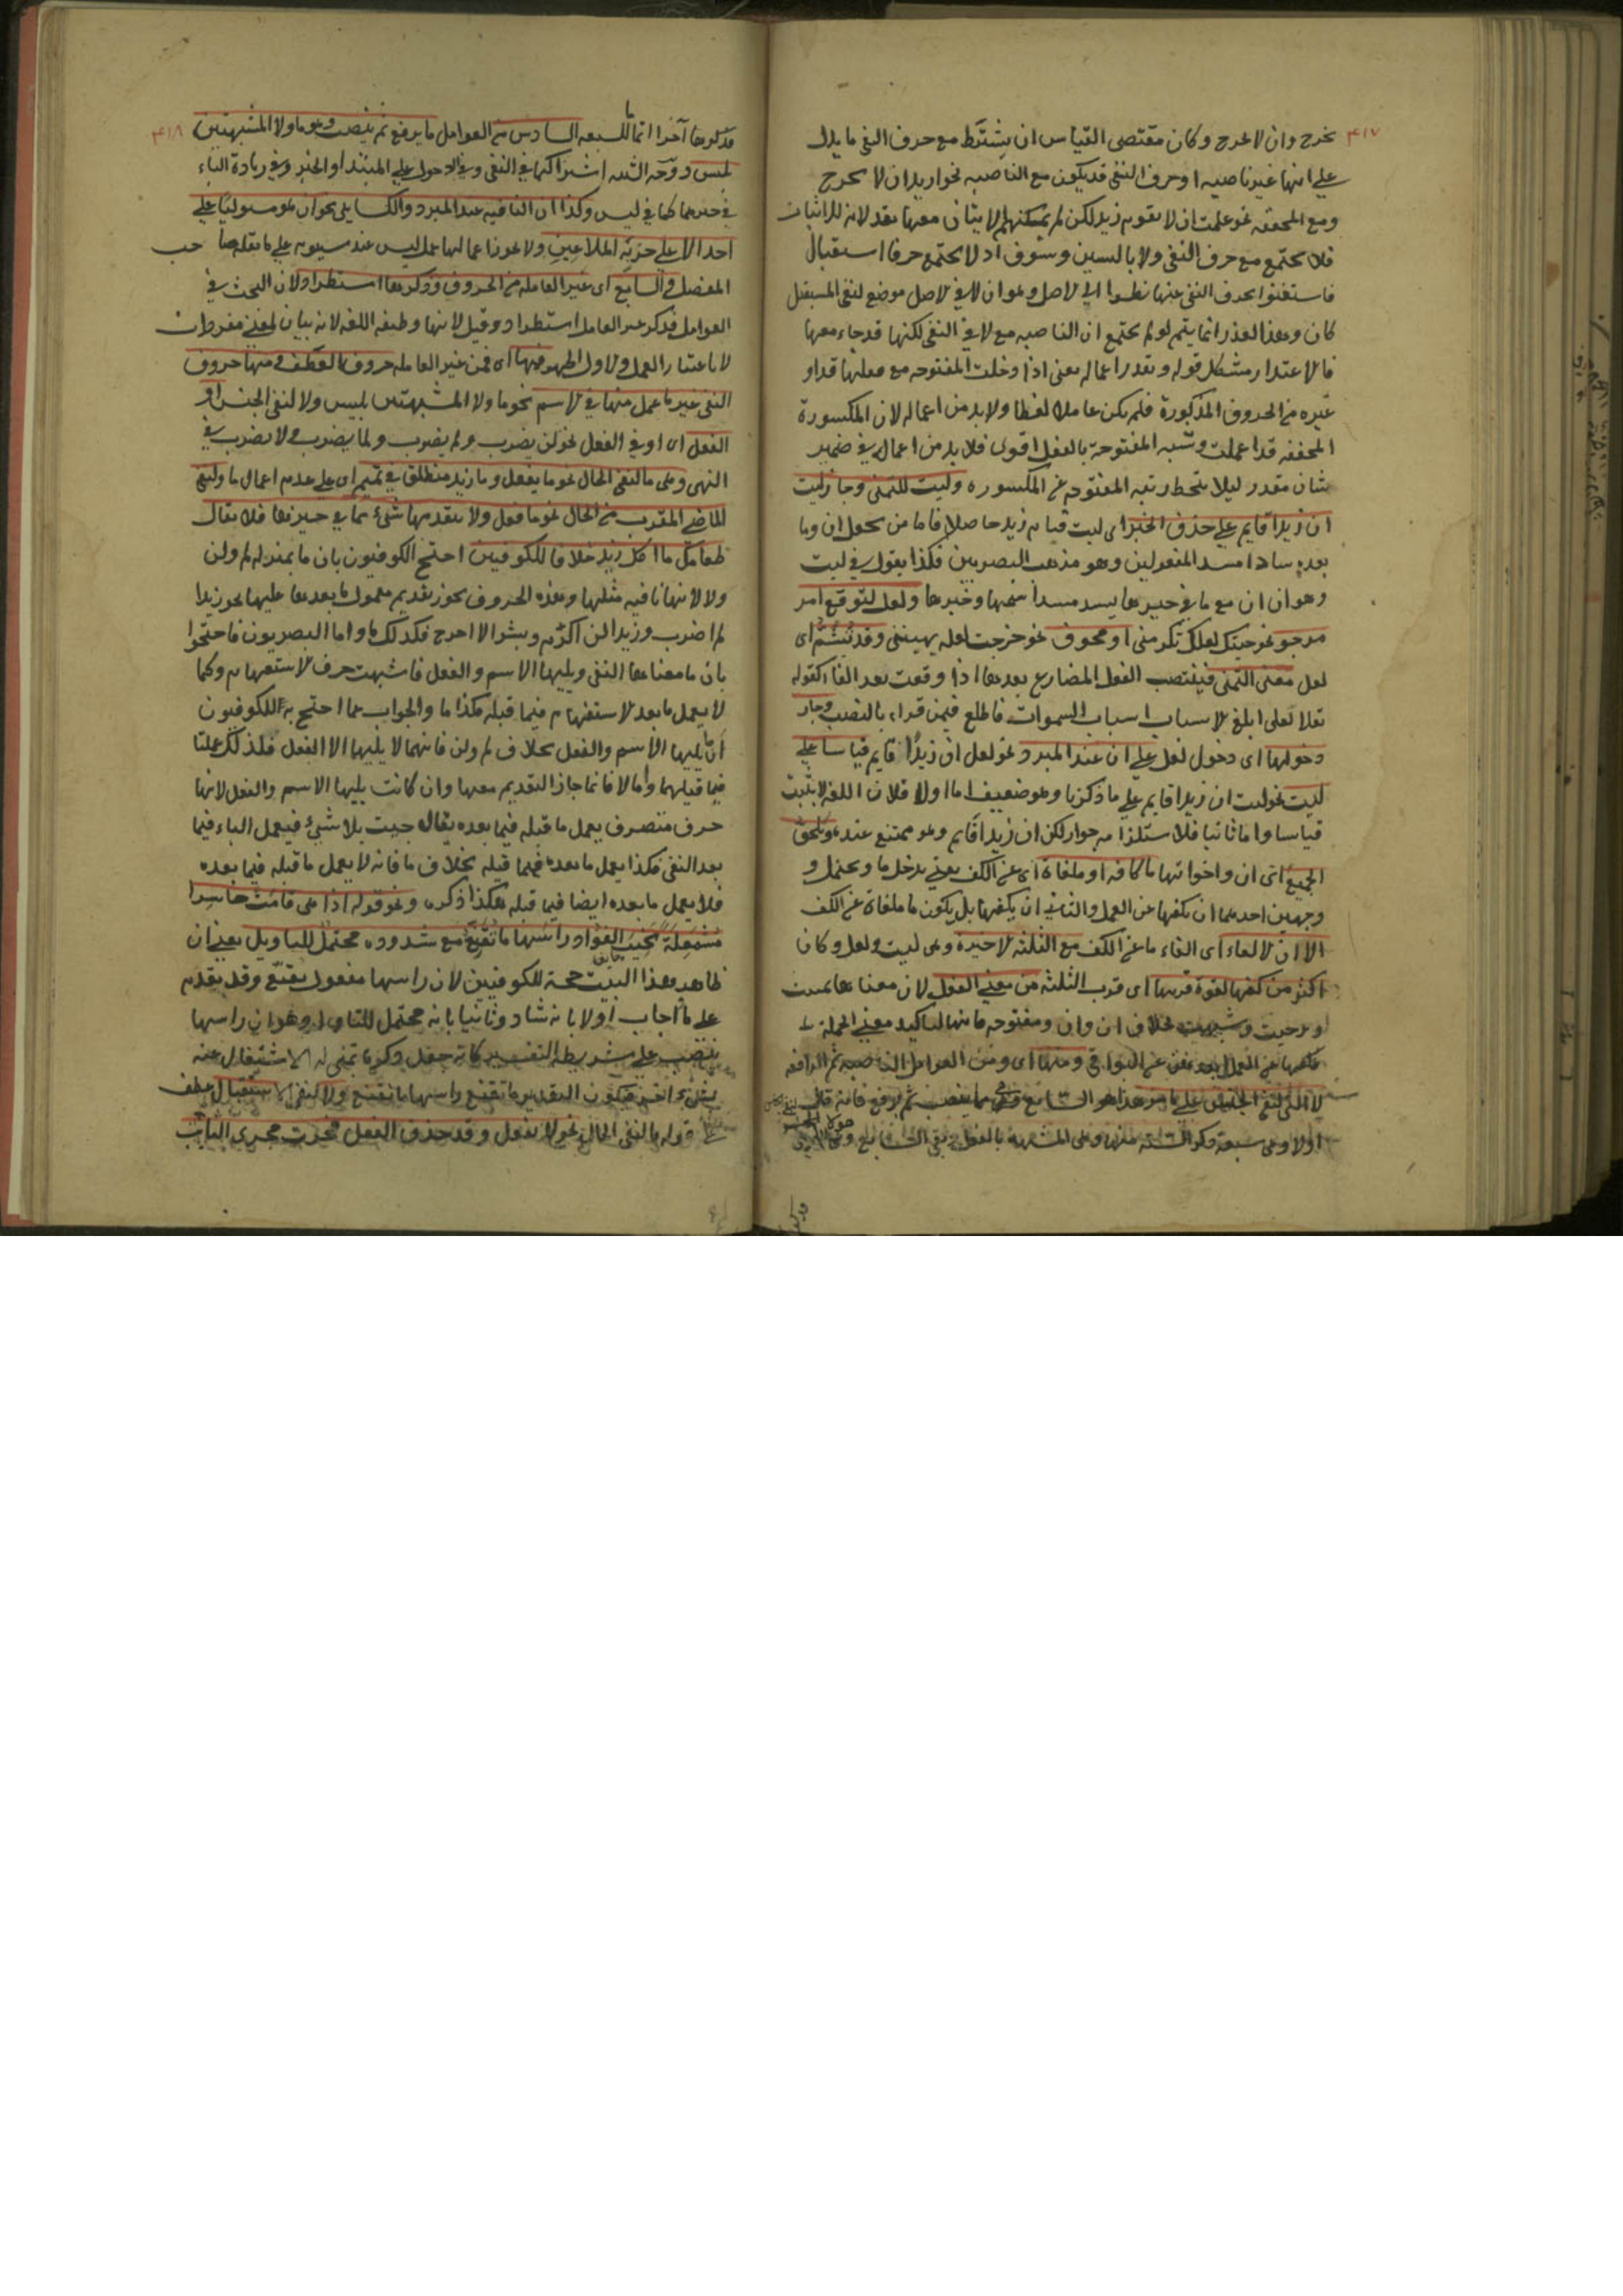 ٤١٧
نخرج وان لا نخرج وكان مقتضى القياس ان يشترط مع حرف النفى ما يدل
على انها غير ناصبه او حرف النفى قد يكون مع الناصبه نحو اريد ان لا نخرج
ومع المخففه نحو علمت ان لا يقوم زيد لكن لم يمكنهم الاتيان معها بقد لانه للاثبات
فلا يجتمع مع حرف النفى ولا بالسين وسوف اذ لا يجتمع حرفا استقبال
فاستغنوا بحرف النفى عنها نظرا الى الاصل وهو ان لا فى الاصل موضع لنفى المستقبل
كان وهذا العذر انما يتم لو لم يجتمع ان الناصبه مع لا فى النفى لكنها قد جاء معها
فالاعتذار مشكل قوله وتقدر اعماله يعنى اذا دخلت المفتوحه مع فعلها قد او
غيره من الحروف المذكورة فلم يكن عاملا لفظا ولا بد من اعماله لان المكسورة
المخففه قد اعملت وشبه المفتوحة بالفعل اقوى فلا بد من اعماله فى ضمير
شان مقدر ليلا ينحط رتبه المفتوحه عن المكسوره وليت للتمنى وجاز ليت
ان زيدا قايم على حذف الخبر اى ليت قيام زيد حاصلا فاما من يجعل ان وما
بعده سادا مسد المفعولين وهو مذهب البصريين فكذا يقول فى ليت
وهو ان ان مع ما فى حيزها يسد مسد اسمها وخبرها ولعل لتوقع امر
مرجو نحو جيتك لعلك تكرمنى او مخوف نحو خرجت لعله يهيننى وقد تشم اى
لعل معنى التمنى فينتصب الفعل المضارع بعدها اذا وقعت بعد الفا كقوله
تعلا لعلى ابلغ الاسباب اسباب السموات فاطلع فيمن قراء بالنصب وجاز
دخولها اى دخول لعل على ان عند المبرد نحو لعل ان زيدا قايم قياسا على
ليت نحو ليت ان زيدا قايم على ما ذكرنا وهو ضعيف اما اولا فلان اللغه لا يثبت
قياسا واما ثانيا فلاستلزامه جواز لكن ان زيدا قايم وهو ممتنع عنده ويلحق
الجميع اى ان واخواتها ما كافه او ملغاة اى عن الكف يعنى يدخل ما ويحتمل و
وجهين احدهما ان يكفها عن العمل والثانى ان يكفها بل يكون ما ملغاة عن الكف
الا ان الالغاء اى الغاء ما عن الكف مع الثلثه الاخيره وهى ليت ولعل وكان
اكثر من كفها لقوة قربها اى قرب الثلثه من معنى الفعل لان معناها تمنيت
وترجيت وشبهت بخلاف ان وان ومفتوحه فانها لتاكيد معنى الجمله
ومنها اى ومن العوامل الناصبه ثم الرافعه
لا التى لنفى الجنس على ما مر هذا هو السابع مما ينصب ثم يرفع فانه قال
اولا وهى سبعة ذكر الستة منها وهى المشبهه بالفعل بقى السابع
٤١٨
آخرا السادس من العوامل ما يرفع ثم ينصب وهو ما ولا المشبهتين
بليس ووجه الشبه اشتراكهما فى النفى وفى الدخول على المبتداء والخبر وفى زيادة الباء
فى خبرهما كما فى ليس وكذا ان النافيه عند المبرد والكسايى نحو ان هو مستوليا على
احد الا على حزبه الملاعين ولا يجوز اعمالها عمل ليس عند سيبويه على ما نقله صاحب
المفصل والسابع اى غير العامله من الحروف وذكرها استطرادا لان البحث فى
العوامل فذكر غير العامل استطراد وقيل لانها وظيفه اللغه لانه بيان لمعنى مفردات
لا باعتبار العمل والاول اظهر فمنها اى فمن غير العامله حروف العطف ومنها حروف
النفى غير ما عمل منها فى الاسم نحو ما ولا المشبهتين بليس ولا لنفى الجنس او
الفعل اى او فى الفعل نحو لن يضرب ولم يضرب ولما يضرب ولا يضرب فى
النهى وهى ما لنفى الحال نحو ما يفعل وما زيد منطلق فى تميم اى على عدم اعمال ما ولنفى
الماضى المقرب من الحال نحو ما فعل ولا يتقدمها شىء مما فى حيزها فلا يقال
طعامك ما اكل زيد خلافا للكوفيين احتج الكوفيون بان ما بمنزله لم ولن
ولا لانها نافيه مثلها وهذه الحروف يجوز تقديم معمول ما بعدها عليها نحو زيدا
لم اضرب وزيدا لن اكرم وبشرا لا اخرج فكذلك ما واما البصريون فاحتجوا
بان ما معناها النفى ويليها الاسم والفعل فاشبهت حرف الاستفهام وكما
لا يعمل ما بعد الاستفهام فيما قبله فكذا ما والجواب عما احتج به الكوفيون
ان ما يليها الاسم والفعل بخلاف لم ولن فانهما لا يليهما الا الفعل فلذلك عملتا
فيما قبلهما واما لا فانما جاز التقديم معها وان كانت يليها الاسم والفعل لانها
حرف متصرف يعمل ما قبله فيما بعده يقال جيت بلا شىء فيعمل الباء فيما
بعد النفى فكذا يعمل ما بعده فيما قبله بخلاف ما فانه لا يعمل ما قبله فيما بعده
فلا يعمل ما بعده ايضا فيما قبله هكذا ذكره ونحو قوله اذا هى قامت حاسرا
مشمعلة نخيب الفؤاد راسها ما تقنع مع شذوذه محتمل للتاويل يعنى ان
ظاهر هذا البيت حجة للكوفيين لان راسها مفعول تقنع وقد تقدم
على ما اجاب اولا بانه شاذ وثانيا بانه محتمل للتاويل وهو ان راسها
ينتصب على شريطة التفسير
بشىء اخر فيكون التقدير ما تقنع راسها ما تقنع ولا لنفى الاستقبال عطف
على قوله ما لنفى الحال نحو لا يفعل وقد حذف الفعل فجرت مجرى النايب